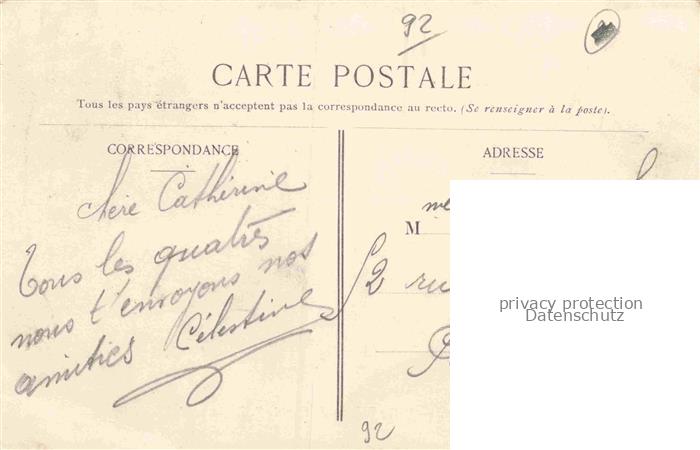 92
CARTE POSTALE
Tous les pays étrangers n'acceptent pas la correspondance au recto. (Se renseigner à la poste).
CORRESPONDANCE
chère Cathérine
Tous les quatrês
nous t'envoyons nos
amitiés Célestine
92
ADRESSE
M
52 ru
privacy protection
Datenschutz